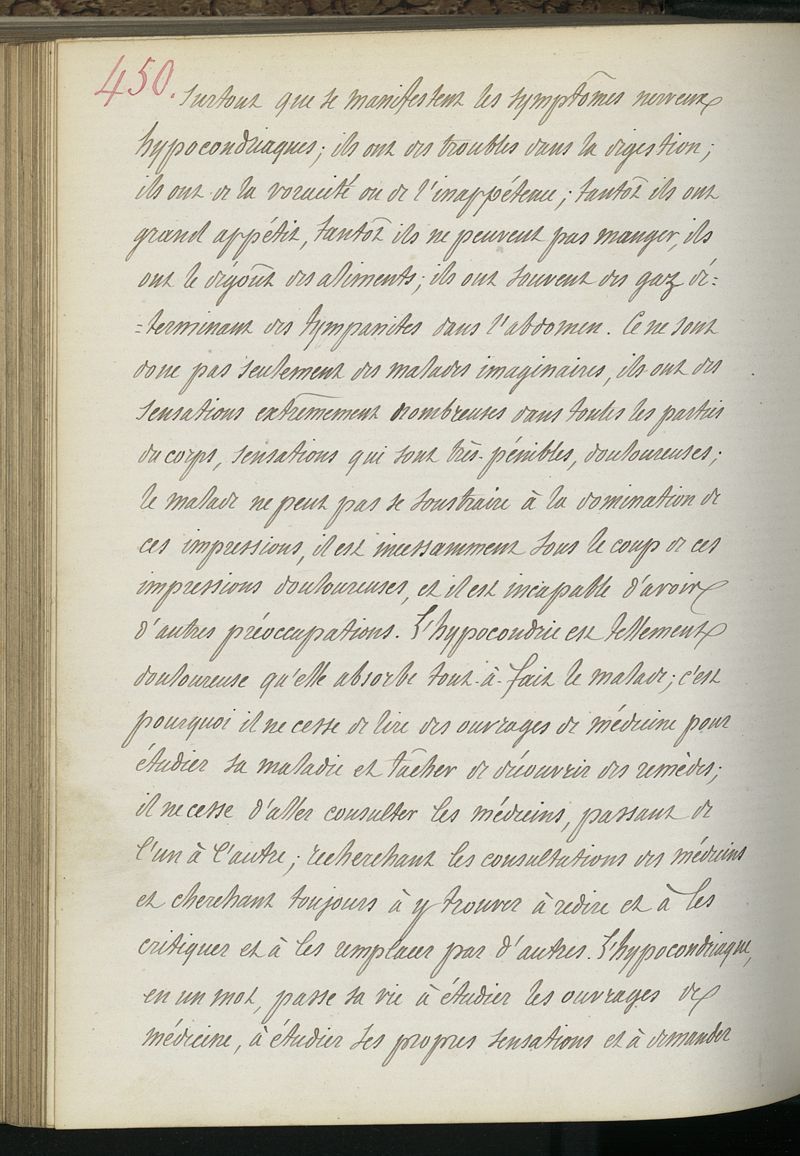 450.
surtout que se manifestent les symptômes nerveux
hypocondriaques; ils ont des troubles dans la digestion;
ils ont de la voracité ou de l'inappétence; tantôt ils ont
grand appétit, tantôt ils ne peuvent pas manger, ils
ont le dégoût des aliments; ils ont souvent des gaz dé=
=terminant des tympanites dans l'abdomen. Ce ne sont
donc pas seulement des malades imaginaires, ils ont des
sensations extrêmement nombreuses dans toutes les parties
du corps, sensations qui sont très-pénibles, douloureuses;
le malade ne peut pas se soustraire à la domination de
ces impressions, il est incessamment sous le coup de ces
impressions douloureuses, et il est incapable d'avoir
d'autres préoccupations. L'hypocondrie est tellement
douloureuse qu'elle absorbe tout-à-fait le malade; c'est
pourquoi il ne cesse de lire des ouvrages de médecine pour
étudier sa maladie et tâcher de découvrir des remèdes;
il ne cesse d'aller consulter les médecins, passant de
l'un à l'autre; recherchant les consultations des médecins
et cherchant toujours à y trouver à redire et à les
critiquer et à les remplacer par d'autres. L'hypocondriaque,
en un mot, passe sa vie à étudier les ouvrages de
médecine, à étudier ses propres sensations et à demander